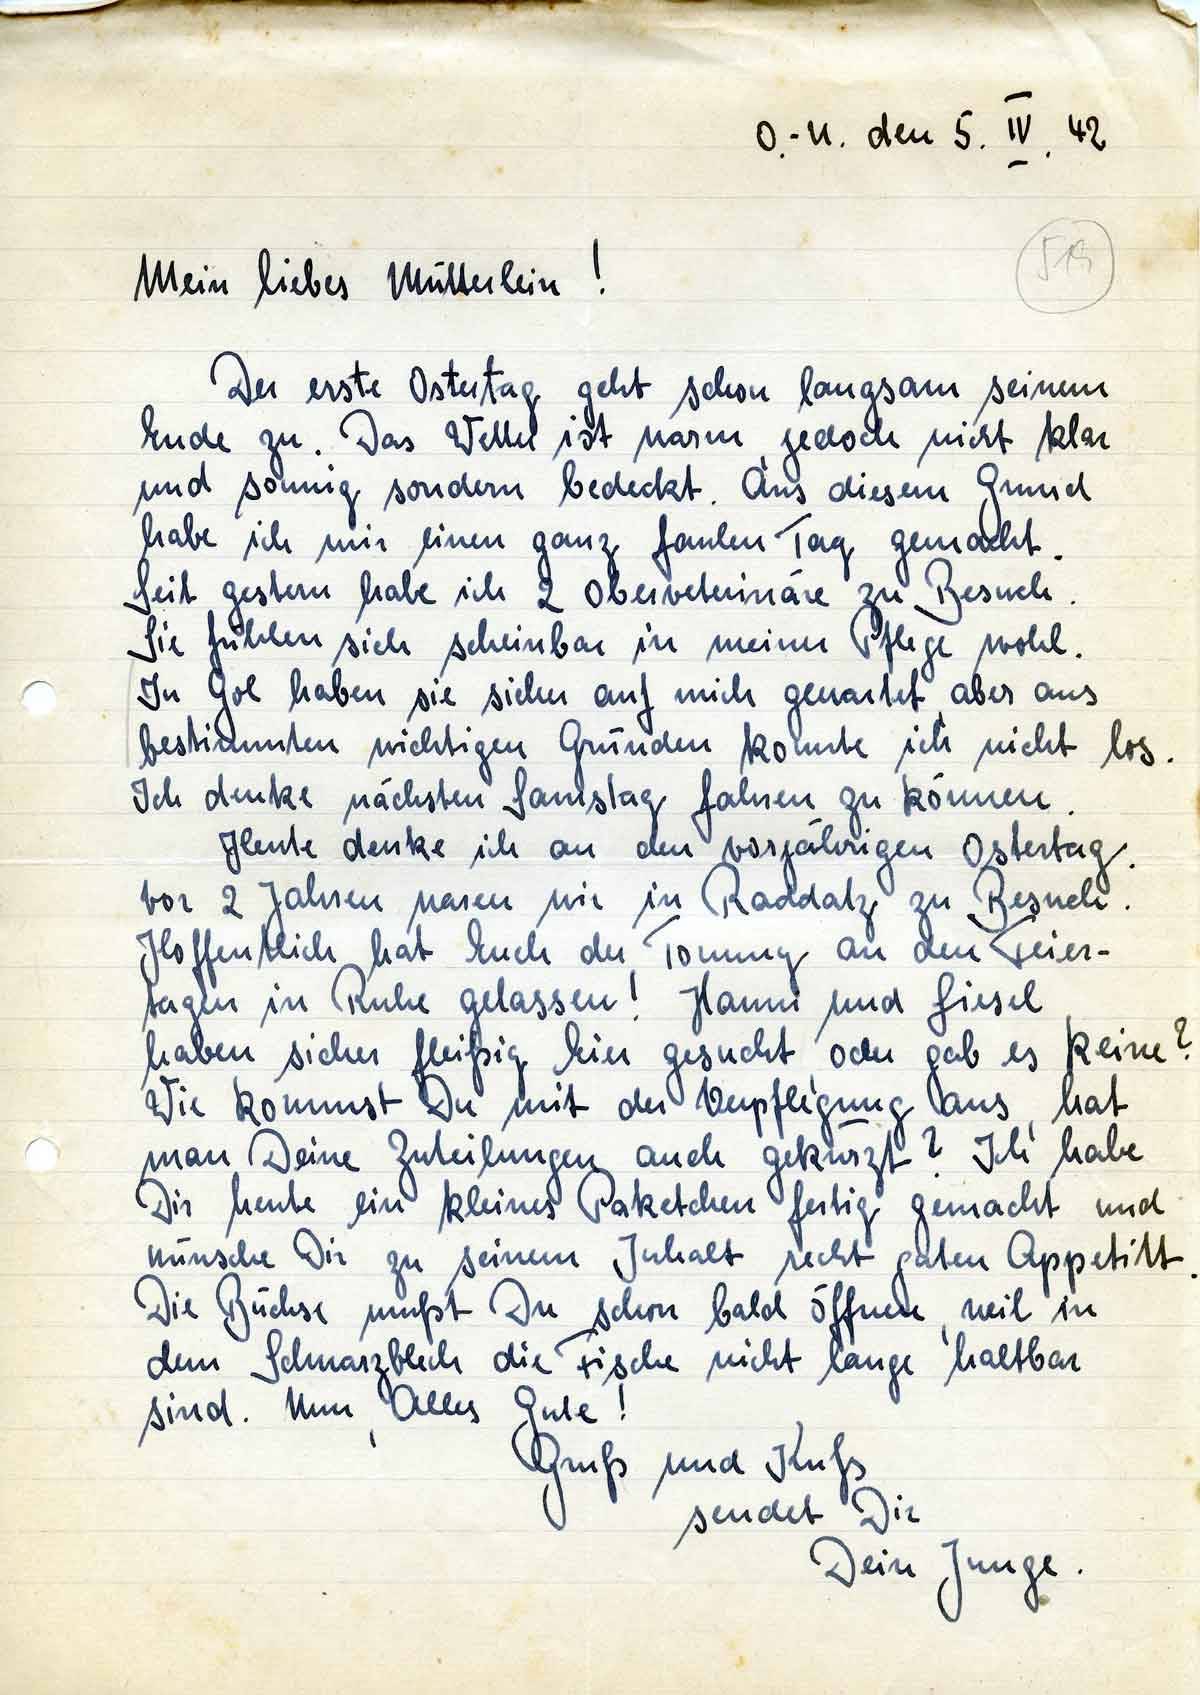 O.-U. den 5. IV. 42
Mein liebes Mütterlein!
Der erste Ostertag geht schon langsam seinem
Ende zu. Das Wetter ist warm, jedoch nicht klar
und sonnig sondern bedeckt. Aus diesem Grund
habe ich mir einen ganz faulen Tag gemacht.
Seit gestern habe ich 2 Oberveterinäre zu Besuch.
Sie fühlen sich scheinbar in meiner Pflege wohl.
In Gol haben sie sicher auf mich gewartet, aber aus
bestimmten wichtigen Gründen konnte ich nicht los.
Ich denke nächsten Samstag fahren zu können.
Heute denke ich an den vorjährigen Ostertag.
vor 2 Jahren waren wir in Raddatz zu Besuch.
Hoffentlich hat Euch der Tommy an den Feier-
tagen in Ruhe gelassen! Hanni und Giesel
haben sicher fleißig Eier gesucht oder gab es keine?
Wie kommst Du mit der Verpflegung aus, hat
man Deine Zuteilungen auch gekürzt? Ich habe
Dir heute ein kleines Paketchen fertig gemacht und
wünsche Dir zu seinem Inhalt recht guten Appetitt.
Die Büchse mußt Du schon bald öffnen, weil in
dem Schwarzblech die Fische nicht lange haltbar
sind. Nun, Alles Gute!
Gruß und Kuß
sendet Dir
Dein Junge.